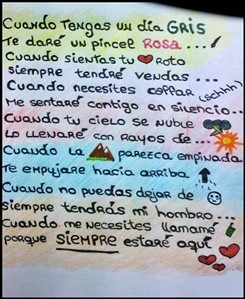 Cuando tengas un día GRIS
Te daré un pincel ROSA...
Cuando sientas tu roto
siempre tendré vendas...
Cuando necesites callar (schhh)
Me sentaré contigo en silencio..
Cuando tu cielo se nuble
Lo llenaré con rayos de...
Cuando la parezca empinada
Te empujare hacia arriba
Cuando no puedas dejar de
siempre tendrás mi hombro...
Cuando me necesites llamame
porque SIEMPRE estaré aquí